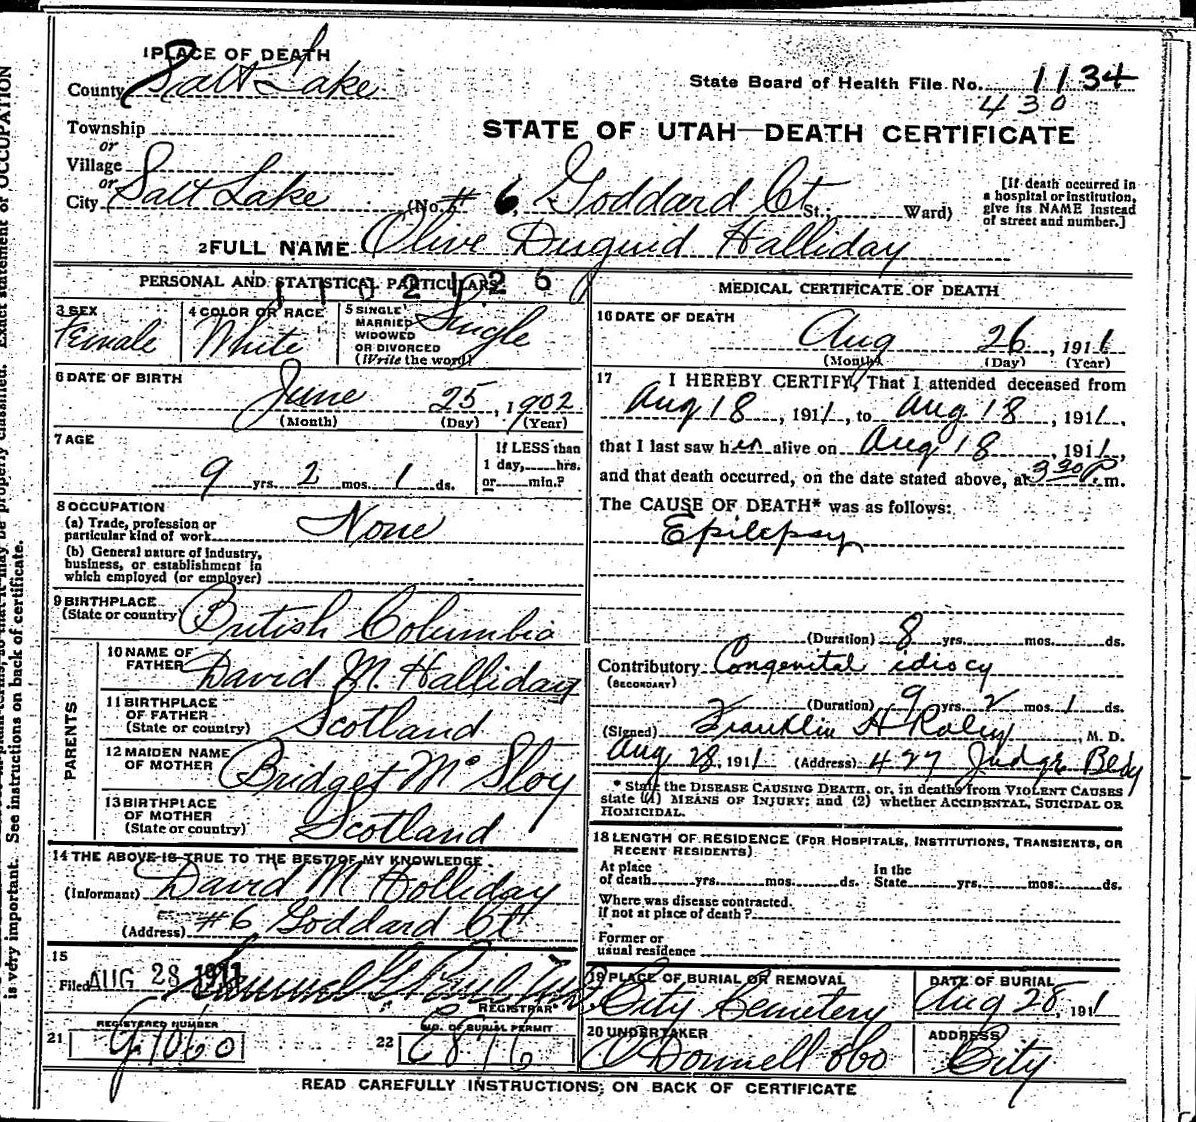 1 PLACE OF DEATH
County Salt Lake
State Board of Health File No. 1134
430
Township
or
Village
or
STATE OF UTAH—DEATH CERTIFICATE
City Salt Lake (No. # 6, Goddard Ct St.; Ward)
[If death occurred in a hospital or institution, give its NAME instead of street and number.]
2 FULL NAME Olive Duguid Halliday
PERSONAL AND STATISTICAL PARTICULARS
3 SEX Female
4 COLOR OR RACE White
5 SINGLE MARRIED WIDOWED OR DIVORCED (Write the word) Single
6 DATE OF BIRTH
June 25, 1902
(Month) (Day) (Year)
7 AGE
9 yrs. 2 mos. 1 ds.
If LESS than 1 day, hrs. or min.?
8 OCCUPATION
(a) Trade, profession or particular kind of work None
(b) General nature of industry, business, or establishment in which employed (or employer)
9 BIRTHPLACE (State or country) British Columbia
PARENTS
10 NAME OF FATHER David M. Halliday
11 BIRTHPLACE OF FATHER (State or country) Scotland
12 MAIDEN NAME OF MOTHER Bridget McSloy
13 BIRTHPLACE OF MOTHER (State or country) Scotland
14 THE ABOVE IS TRUE TO THE BEST OF MY KNOWLEDGE
(Informant) David M Holliday
(Address) #6 Goddard Ct
15
Filed AUG 28 1911
REGISTRAR
21 REGISTERED NUMBER
22 NO. OF BURIAL PERMIT
MEDICAL CERTIFICATE OF DEATH
16 DATE OF DEATH
Aug 26, 1911
(Month) (Day) (Year)
17 I HEREBY CERTIFY, That I attended deceased from
Aug 18, 1911, to Aug 18, 1911,
that I last saw her alive on Aug 18, 1911,
and that death occurred, on the date stated above, at 3 30 P. m.
The CAUSE OF DEATH* was as follows:
Epilepsy
(Duration) 8 yrs. mos. ds.
Contributory Congenital idiocy
(SECONDARY)
(Duration) 9 yrs. 2 mos. 1 ds.
(Signed) Franklin H, M. D.
Aug 28, 1911 (Address) 427 Judge
* State the DISEASE CAUSING DEATH, or, in deaths from VIOLENT CAUSES
state (1) MEANS OF INJURY; and (2) whether ACCIDENTAL, SUICIDAL OR
HOMICIDAL.
18 LENGTH OF RESIDENCE (FOR HOSPITALS, INSTITUTIONS, TRANSIENTS, OR
RECENT RESIDENTS)
At place of death yrs. mos. ds. In the State yrs. mos. ds.
Where was disease contracted, if not at place of death?
Former or usual residence
19 PLACE OF BURIAL OR REMOVAL City Cemetery
DATE OF BURIAL Aug 28, 1911
20 UNDERTAKER O'Donnell &Co
ADDRESS City
READ CAREFULLY INSTRUCTIONS; ON BACK OF CERTIFICATE
is very important. See instructions on back of certificate.